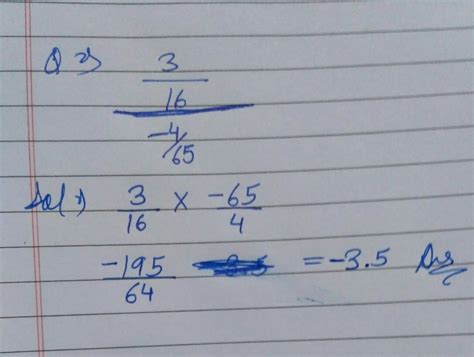 Q 2) 3
16
-4/65
Sol) 3/16 × -65/4
-195/64 = -3.5 Ans